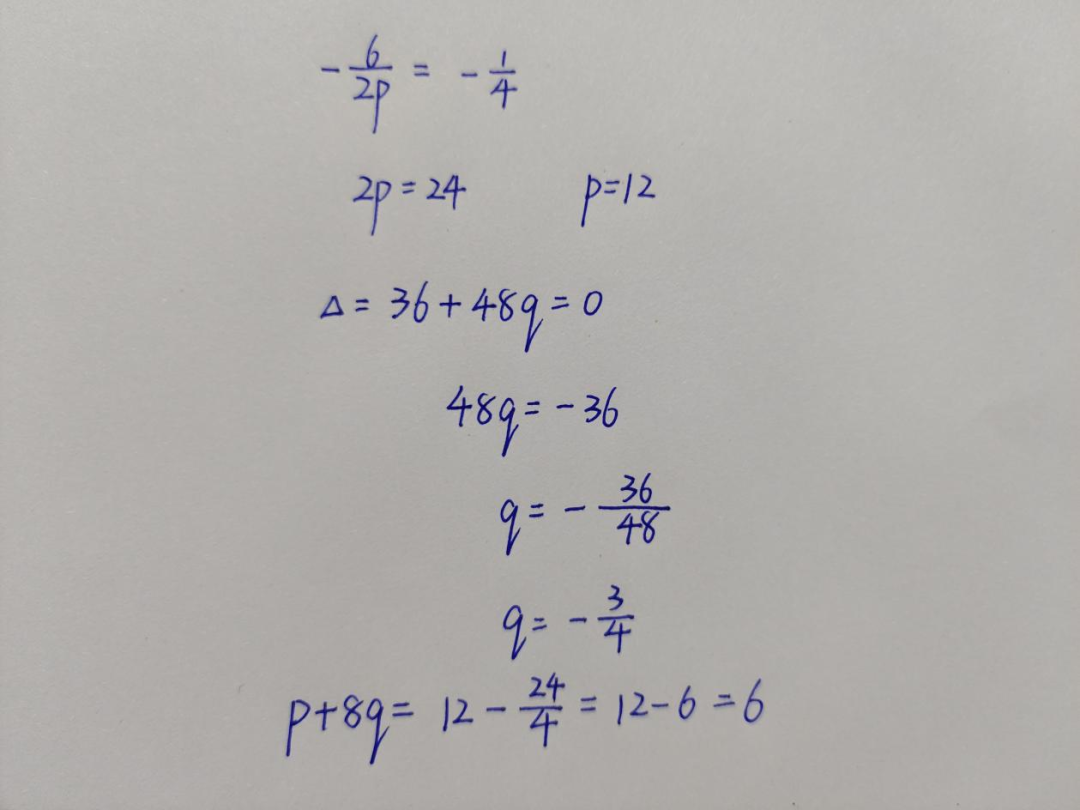 -\frac{6}{2p} = -\frac{1}{4}
2p=24 p=12
Δ= 36+48q=0
48q=-36
q= -\frac{36}{48}
q= -\frac{3}{4}
p+8q= 12-\frac{24}{4}=12-6=6